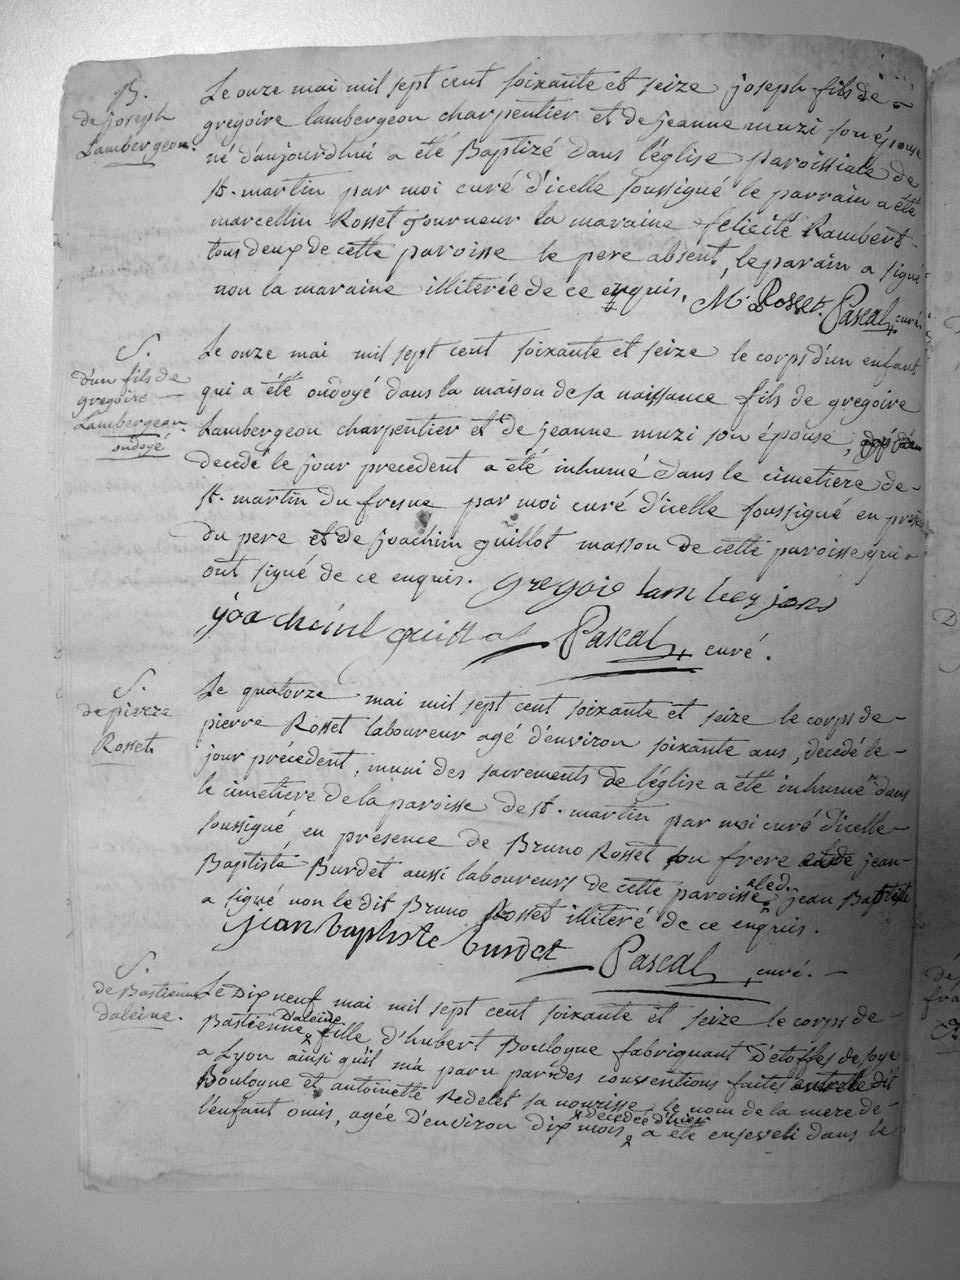 B.
de joseph
Lambergeon.
Le onze mai mil sept cent soixante et seize joseph fils de
gregoire lambergeon charpentier et de jeanne muzi son épouse
né d'aujourd'hui a été Baptizé dans l'église paroissiale de
st. martin par moi curé d'icelle soussigné le parrain a été
marcellin Rosset journeur la maraine felicité Rambert
tous deux de cette paroisse le pere absent, le parain a signé
non la maraine illiterée de ce enquis. M. Rosset. Pascal, curé.
S.
d'un fils de
gregoire
Lambergeon
ondoyé
Le onze mai mil sept cent soixante et seize le corps d'un enfant
qui a été ondoyé dans la maison de sa naissance fils de gregoire
Lambergeon charpentier et de jeanne muzi son épouse,
decedé le jour precedent a été inhumé dans le cimetiere de
st. martin du fresne par moi curé d'icelle soussigné en
du pere et de joachim guillot masson de cette paroisse qui
ont signé de ce enquis. gregoie lam berjons
joa cheint guillot Pascal, curé.
S.
de pierre
Rosset.
Le quatorze mai mil sept cent soixante et seize le corps de
pierre Rosset laboureur agé d'environ soixante ans, decedé le
jour précedent, muni des sacrements de l'église a été inhumé dans
le cimetiere de la paroisse de st. martin par moi curé d'icelle
soussigné en présence de Bruno Rosset son frere et de jean
Baptiste Burdet aussi laboureurs de cette paroisse, led. jean Baptiste
a signé non le dit Bruno Rosset illitéré de ce enquis.
jean baptiste burdet Pascal, curé.
S.
de Bastienne
daleine.
Le Dix neuf mai mil sept cent soixante et seize le corps de
Bastienne Daleine fille d'hubert Boulogne fabriquant d'étoffes de soye
a Lyon ainsi qu'il m'a paru par des conventions faites entre le dit
Boulogne et antoinette Redelet sa nourisse, le nom de la mere de
l'enfant omis, agée d'environ dix mois, decedée d'hier a été enseveli dans le